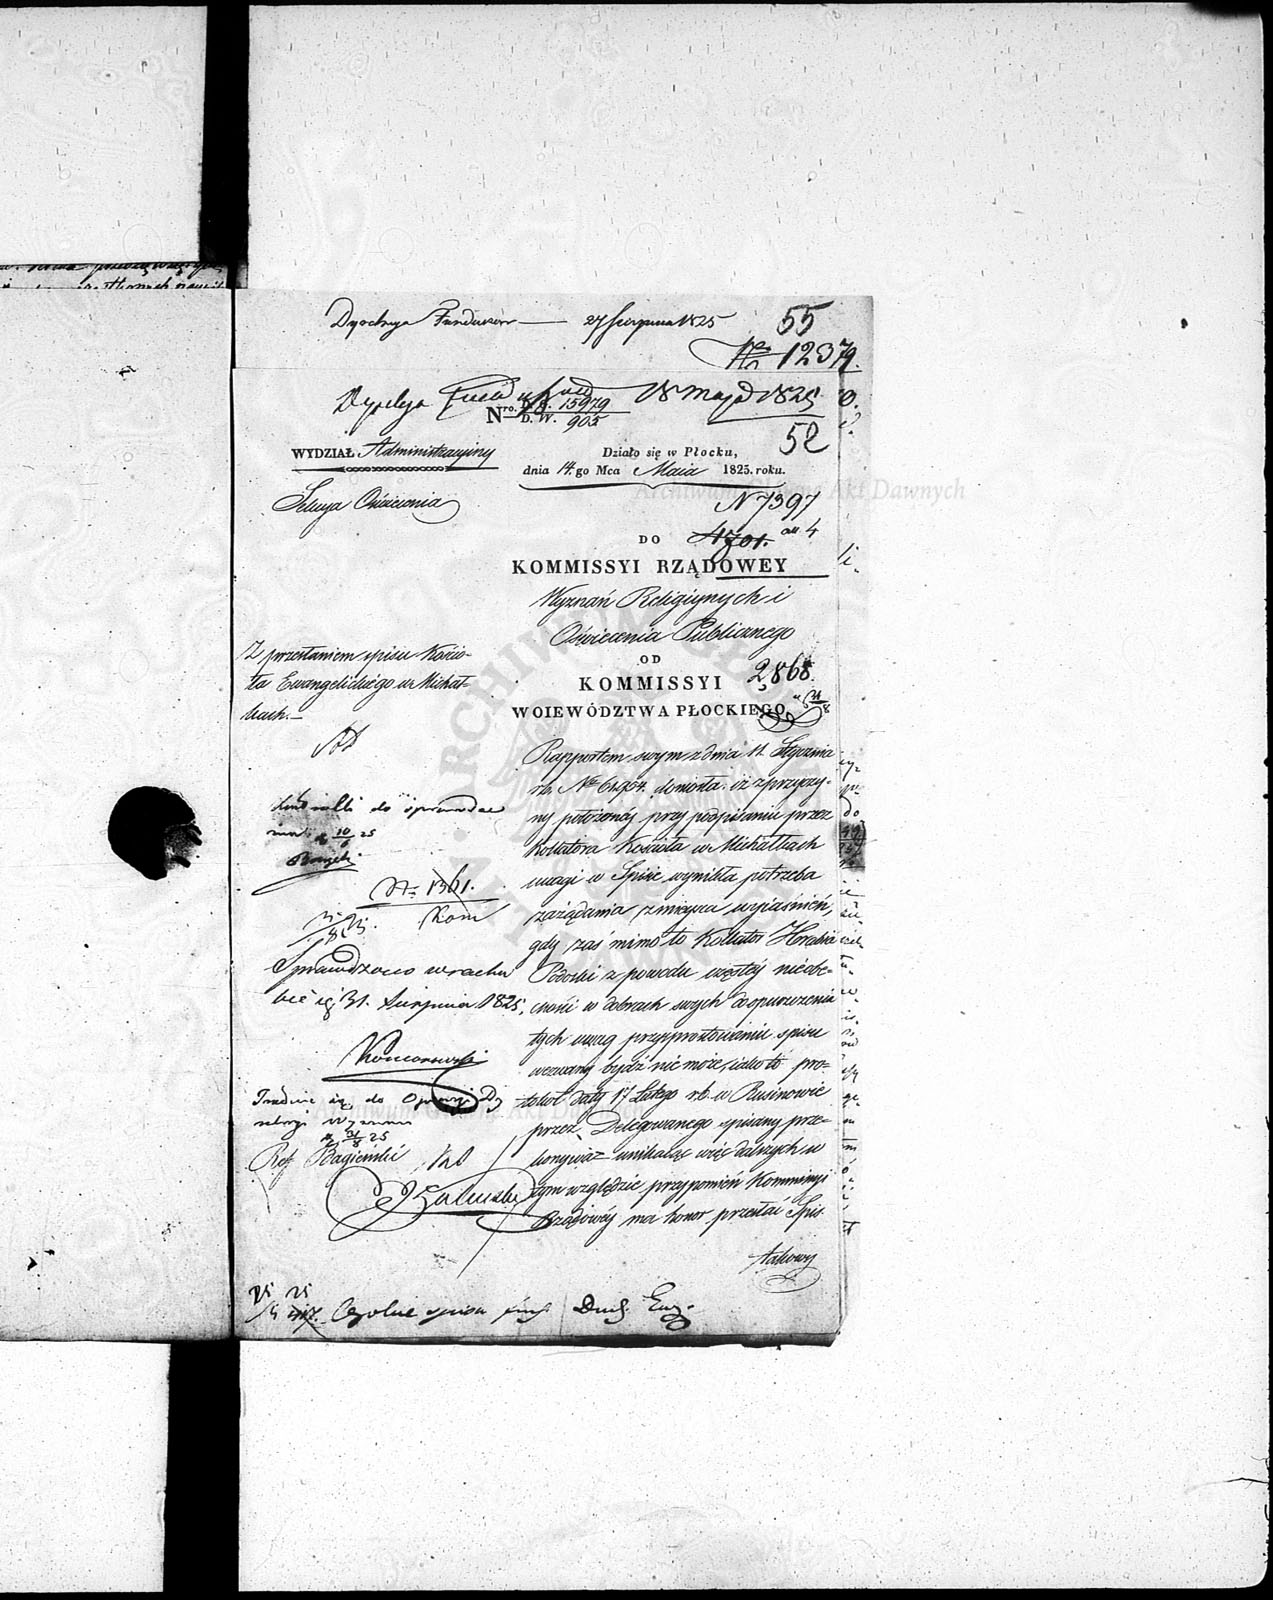 Dyrekcya Funduszów — 27 Sierpnia 1825
55
No 12379.
Dyrekcya Funduszów 18 Maja 1825
Nro. D. G. 15979
D. W. 905
52
WYDZIAŁ Administracyiny
Działo się w Płocku,
dnia 14.go Mca Maia 1825. roku.
Sekcya Oświecenia
N 7397
4701. all 4
DO
KOMMISSYI RZĄDOWEY
Wyznań Religiynych i
Oświecenia Publicznego
OD
KOMMISSYI 2,868.
WOIEWÓDZTWA PŁOCKIEGO
Z przesłaniem spisu Kościo-
ła Ewangelickiego w Michał-
kach.
Rapportem swym z dnia 11. Stycznia
rb. No 61,954. doniosła iż z przyczy-
ny położonéy przy podpisaniu przez
Kollatora Kościoła w Michałkach
uwagi w Spisie wynikła potrzeba
zażądania z mieysca wyiaśnień,
gdy zaś mimo to Kollator Hrabia
Podoski z powodu częstéy nieobe-
cności w dobrach swych do opuszczenia
tych uwag przy prostowaniu spisu
wezwany bydź nie może, iako to pro-
tokół daty 17 Lutego rb. w Rusinowie
przez Delegowanego spisany prze-
konywa unikaiąc więc dalszych w
tym względzie przypomień Kommissyi
Rządowéy ma honor przesłać Spis
takowy
do sprawdze
nia 10/6 25
No 1361.
Kom
Sprawdzono w rachu
bie d. 31. Sierpnia 1825.
Komorowski
do
31/8 25
Ref Bagieński
spisu Duch. Ew.
Archiwum Główne Akt Dawnych